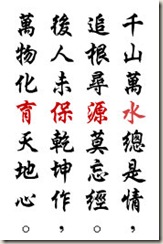 千山萬水總是情，
追根尋源莫忘經。
後人未保乾坤作，
萬物化育天地心。